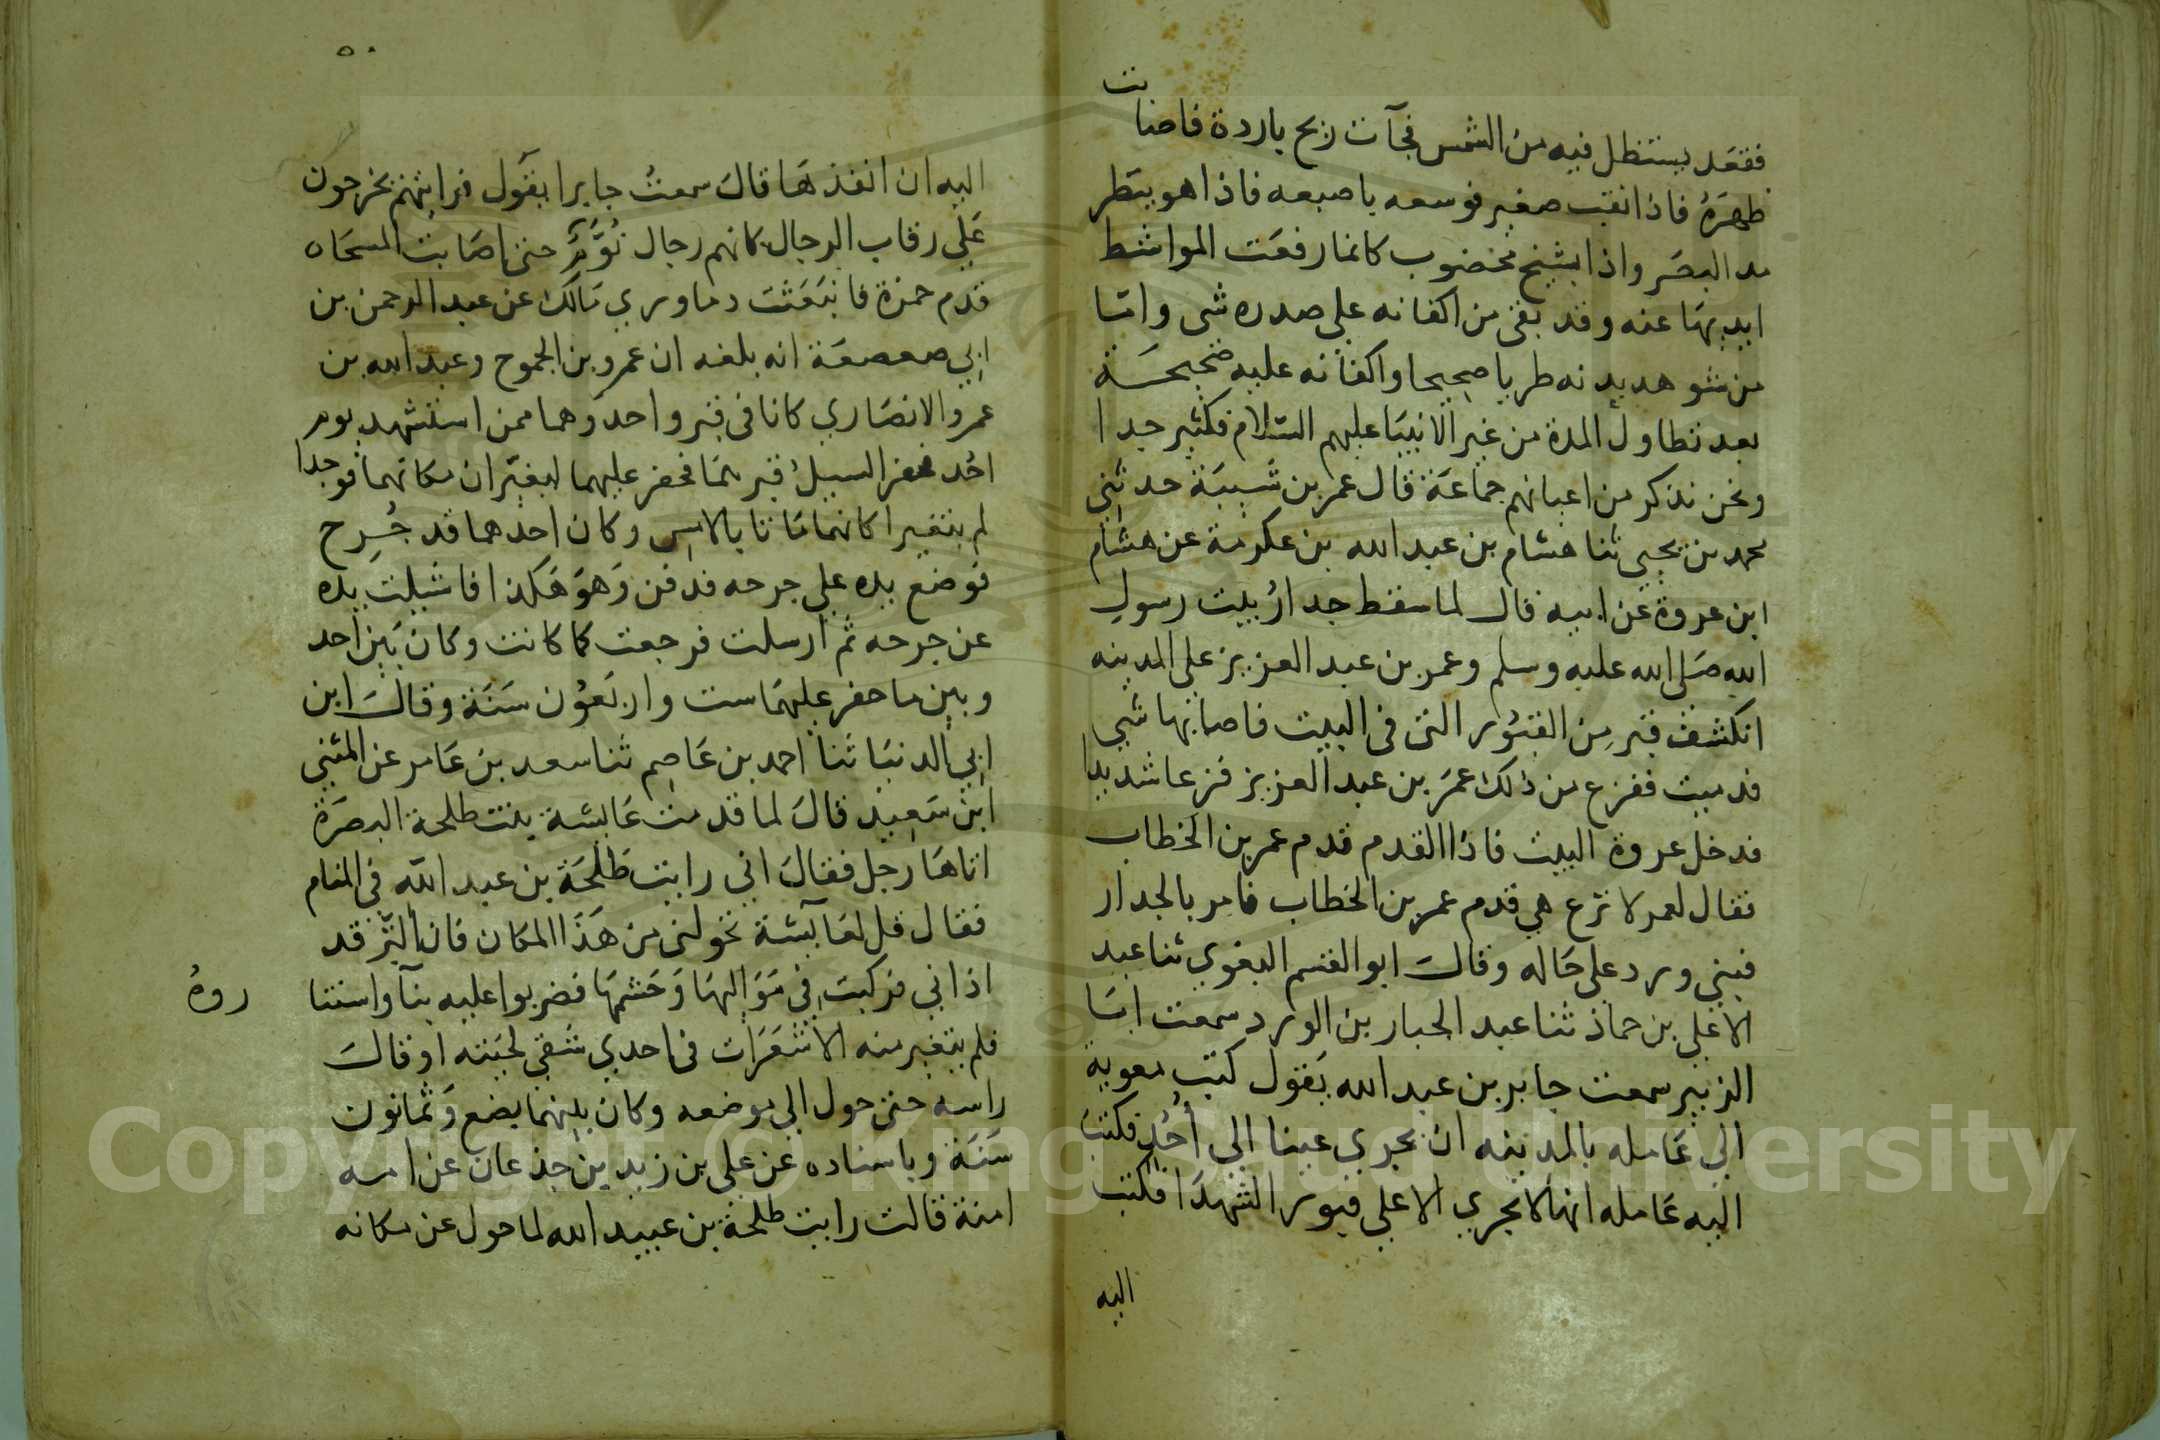 فقعد يستظل فيه من الشمس فجآت ريح باردة فاصابت
ظهره فاذا نقب صغير فوسعه باصبعه فاذا هو ينظر
مد البصر واذا بشيخ مخضوب كانما رفعت المواشط
ايديها عنه وقد بقى من اكفانه على صدره شى واما
من شوهد بدنه طريا صحيحا واكفانه عليه صحيحة
بعد تطاول المدة من غير الانبيا عليهم السلام فكثير جدا
ونحن نذكر من اعيانهم جماعة قال عمر بن شيبة حدثنى
محمد بن يحيى ثنا هشام بن عبد الله بن عكرمة عن هشام
ابن عروة عن ابيه قال لما سقط جدار بيت رسول
الله صلى الله عليه وسلم وعمر بن عبد العزيز على المدينه
انكشف قبر من القبور التى فى البيت فاصابها شى
فدميت ففزع من ذلك عمر بن عبد العزيز فزعا شديدا
فدخل عروة البيت فاذا القدم قدم عمر بن الخطاب
فقال لعمر لا ترع هي قدم عمر بن الخطاب فامر بالجدار
فبنى ورد على حاله وقال ابو القسم البغوي ثنا عبد
الاعلى بن حماد ثنا عبد الجبار بن الورد سمعت ابا
الزبير سمعت جابر بن عبد الله يقول كتب معوية
الى عامله بالمدينه ان يجري عينا الى أحد فكتب
اليه عامله انها لا تجري الا على قبور الشهدا فكتب
اليه
٥٠
اليه ان انفذها قال سمعت جابرا يقول فرايتهم يخرجون
على رقاب الرجال كانهم رجال نوم حتى اصابت المسحاه
قدم حمزة فانبعثت دما وروي مالك عن عبد الرحمن بن
ابي صعصعة انه بلغه ان عمرو بن الجموح وعبد الله بن
عمرو الانصاري كانا فى قبر واحد وهما ممن استشهد يوم
احد فحفر السيل قبرهما فحفر عليهما ليغيران مكانهما فوجدا
لم يتغيرا كانهما ماتا بالامس وكان احدهما قد جرح
فوضع يده على جرحه فدفن وهو هكذا فاشيلت يده
عن جرحه ثم ارسلت فرجعت كما كانت وكان بين احد
وبين ما حفر عليهما ست واربعون سنة وقال ابن
ابي الدنيا ثنا احمد بن عاصم ثنا سعد بن عامر عن المثنى
ابن سعيد قال لما قدمت عايشة بنت طلحة البصرة
اتاها رجل فقال اني رايت طلحة بن عبد الله فى المنام
فقال قل لعآيشة تحولنى من هذا المكان فان النز قد
اذاني فركبت فى مواليها وحشمها فضربوا عليه بنآ واستثا
روه
فلم يتغير منه الا شعرات فى احدي شقي لحيته او قال
راسه حتى حول الى موضعه وكان بينهما بضع وثمانون
سنة وباسناده عن على بن زيد بن جذعان عن امه
امنة قالت رايت طلحة بن عبيد الله لما حول عن مكانه
Copyright © King Saud University